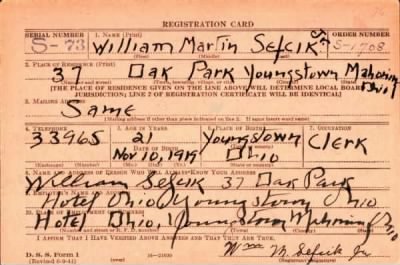 REGISTRATION CARD
SERIAL NUMBER 1. NAME (Print) ORDER NUMBER
S-73 William Martin Sefcik Jr S-1708
(First) (Middle) (Last)
2. PLACE OF RESIDENCE (Print)
37 Oak Park Youngstown Mahoning Ohio
(Number and street) (Town, township, village, or city) (County) (State)
[THE PLACE OF RESIDENCE GIVEN ON THE LINE ABOVE WILL DETERMINE LOCAL BOARD
JURISDICTION; LINE 2 OF REGISTRATION CERTIFICATE WILL BE IDENTICAL]
3. MAILING ADDRESS
Same
[Mailing address if other than place indicated on line 2. If same insert word same]
4. TELEPHONE 5. AGE IN YEARS 6. PLACE OF BIRTH 7. OCCUPATION
33965 21 Youngstown Clerk
DATE OF BIRTH
Nov 10, 1919 Ohio
(Exchange) (Number) (Mo.) (Day) (Yr.) (State or country)
8. NAME AND ADDRESS OF PERSON WHO WILL ALWAYS KNOW YOUR ADDRESS
William Sefcik 37 Oak Park
9. EMPLOYER'S NAME AND ADDRESS
Hotel Ohio, Youngstown, Ohio
10. PLACE OF EMPLOYMENT OR BUSINESS
Hotel Ohio, Youngstown Mahoning Ohio
(Number and street or R. F. D. number) (Town) (County) (State)
I AFFIRM THAT I HAVE VERIFIED ABOVE ANSWERS AND THAT THEY ARE TRUE.
D. S. S. Form 1
(Revised 6-9-41)
Wm M. Sefcik Jr.